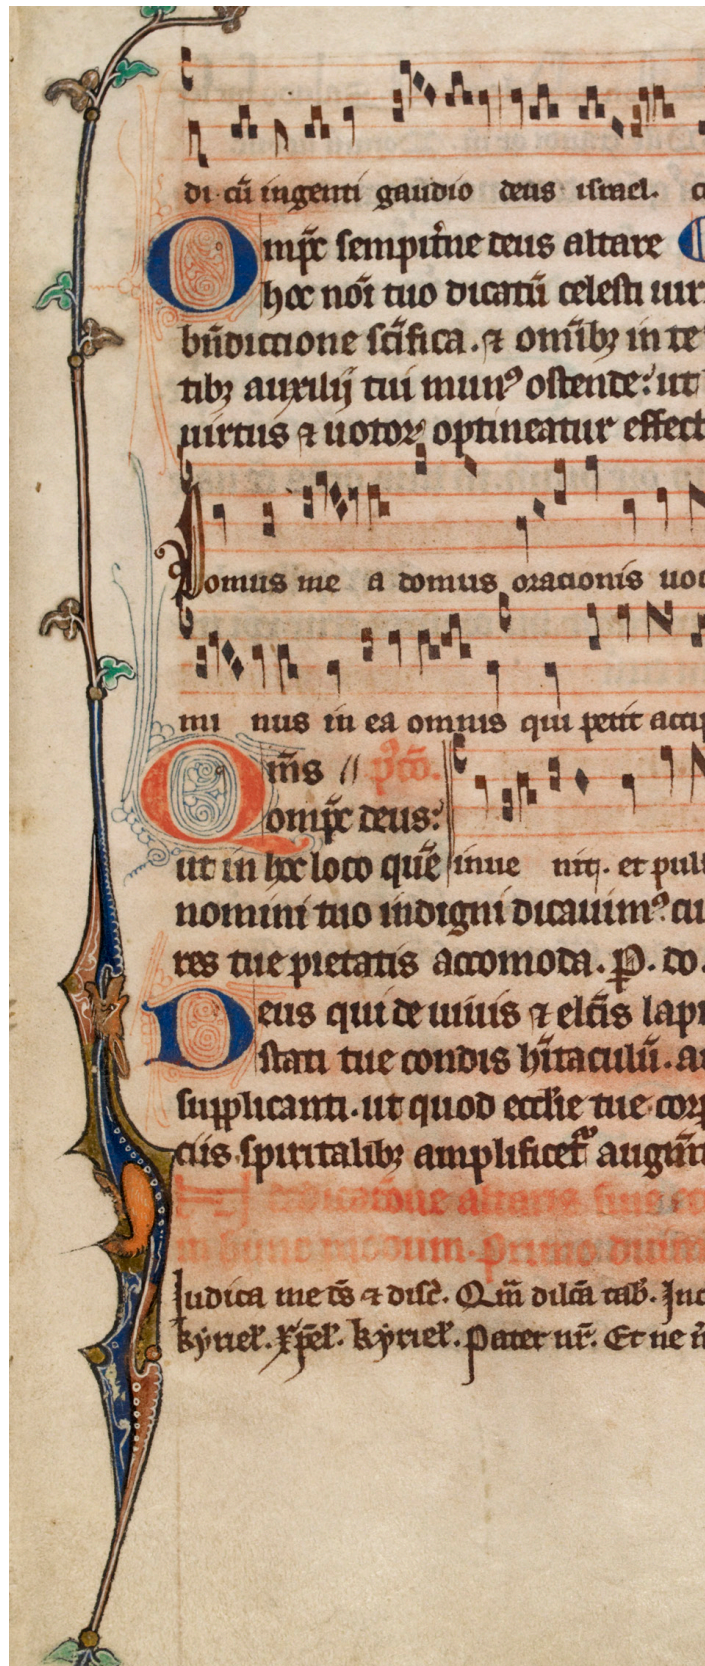 di cū ingenti gaudio deus israel. c
Omp̄c sempit̉ne deus altare
hoc noi͞ tuo dicatū celesti uir
bn̄dictione sc̄ifica. ⁊ omībꝫ in te
tibꝫ auxilij tui munꝰ ostende: ut
uirtus ⁊ uotoꝝ optineatur effect
Domus me a domus orationis uoc
mi nus in ea omnis qui petit accip
Om̄s // p̉cō.
omp̄c deus:
ut in hoc loco quē inue nit. et puls
nomini tuo indigni dicauimꝰ: cu
res tue pietatis accomoda. P. do.
Deus qui de uiuis ⁊ elc̄is lapi
stati tue condis hītaculū. au
supplicanti. ut quod ecclie tue corp
ciis spiritalibꝫ amplificet᷑ augm̄t
dedicatōne altaris
in hunc modum. primo
Iudica me d̄s ⁊ disc̄. Qm̄ dilc̄a tab̄. Inc
kyriel̄. xp̄el̄. kyriel̄. Pater nr̄. Et ne n̄